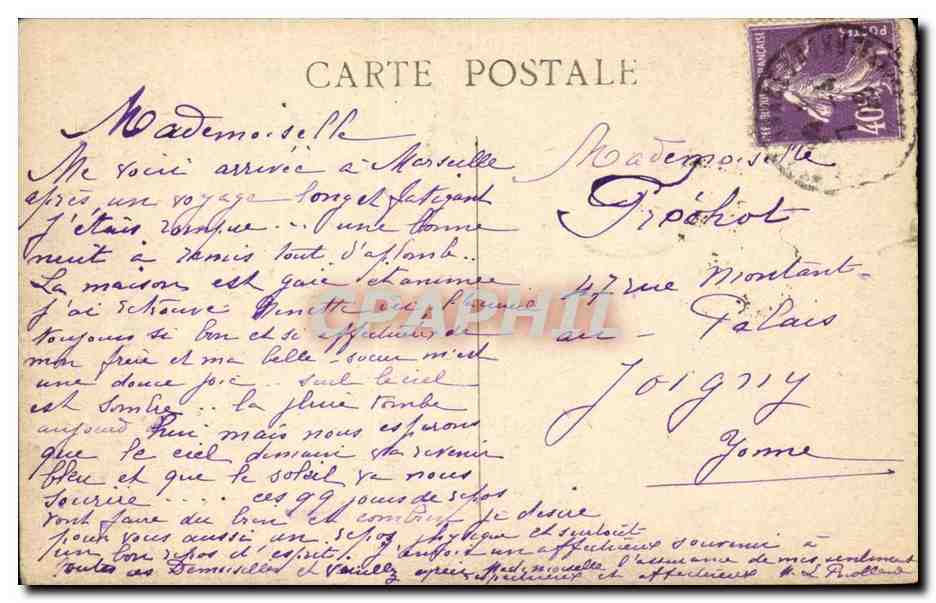 CARTE POSTALE
Mademoiselle
Me voici arrivée à Marseille
après un voyage long et fatigant
j'étais rompue... une bonne
nuit à remis tout d'aplomb..
La maison est gaie et animée
j'ai retrouvé
toujours si bon et si affectueux de
mon frère et ma belle-soeur m'est
une douce joie.. seul le ciel
est sombre.. la pluie tombe
aujourd'hui mais nous espérons
que le ciel demain va revenir
bleu et que le soleil va nous
sourire .... ces qq jours de repos
vont faire du bien et combien je désire
pour vous aussi un repos physique et surtout
un bon repos d'esprit! J'envoie un affectueux souvenir à
toutes ces Demoiselles et veuillez agréer Mademoiselle l'assurance de mes sentiments
respectueux et affectueux
Mademoiselle
Préhot
47 rue Montant-
au-Palais
Joigny
Yonne
POSTES
40c
CPAPHIL